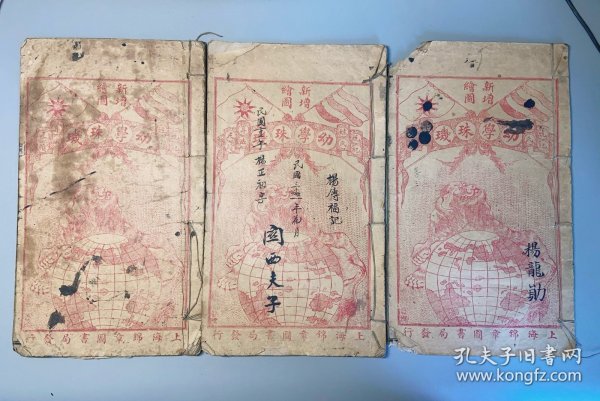 新增
繪圖
幼學珠璣
上海錦章圖書局發行
新增
繪圖
幼學珠璣
楊傳福記
民國三十一年九月
西夫子
民國十五年 楊正初
上海錦章圖書局發行
新增
繪圖
幼學珠璣
楊龍勛
上海錦章圖書局發行
孔夫子旧书网
www.kongfz.com